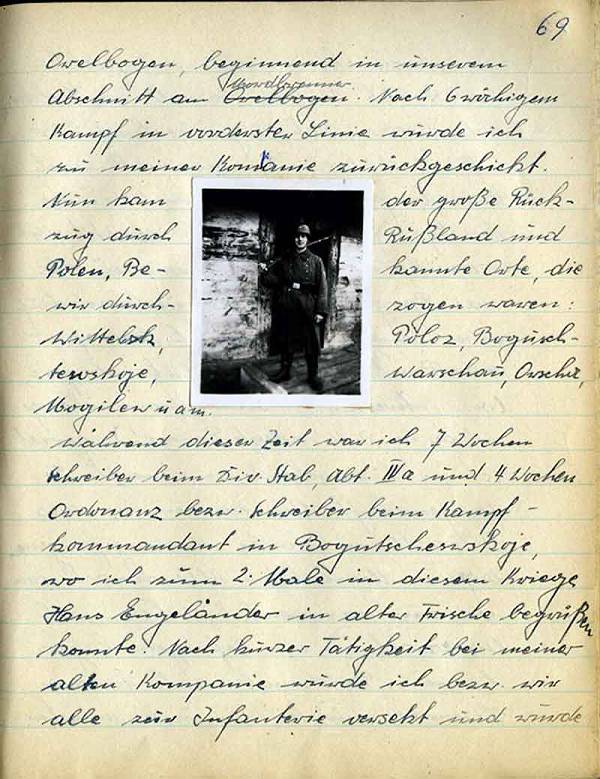 69
Orelbogen, beginnend in unserem
Mordbrenner
Abschnitt am Orelbogen. Nach 6 wöchigem
Kampf in vorderster Linie wurde ich
zu meiner Kompanie zurückgeschickt.
Nun kam der große Rück-
zug durch Rußland und
Polen, Be- kannte Orte, die
wir durch- zogen waren:
Wittebsk, Poloz, Bogusch-
tewskoje, Warschau, Orscha,
Mogilew u am.
Während dieser Zeit war ich 7 Wochen
Schreiber beim Div. Stab, Abt. IVa und 4 Wochen
Ordonanz bezw. Schreiber beim Kampf-
kommandant in Bogutschewskoje,
wo ich zum 2. Male in diesem Kriege
Hans Engeländer in alter Frische begrüßen
konnte. Nach kurzer Tätigkeit bei meiner
alten Kompanie wurde ich bezw. wir
alle zur Infanterie versetzt und wurde